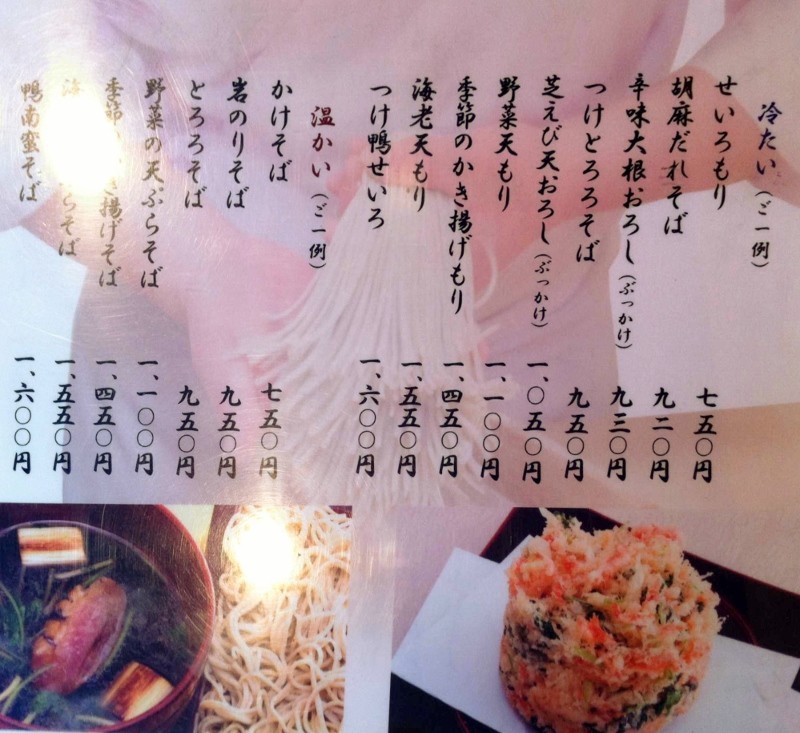 冷たい(ご一例)
せいろもり 七五〇円
胡麻だれそば 九二〇円
辛味大根おろし(ぶっかけ) 九三〇円
つけとろろそば 九五〇円
芝えび天おろし(ぶっかけ) 一、〇五〇円
野菜天もり 一、一〇〇円
季節のかき揚げもり 一、四五〇円
海老天もり 一、五五〇円
つけ鴨せいろ 一、六〇〇円
温かい(ご一例)
かけそば 七五〇円
岩のりそば 九五〇円
とろろそば 九五〇円
野菜の天ぷらそば 一、一〇〇円
季節のかき揚げそば 一、四五〇円
海 らそば 一、五五〇円
鴨南蛮そば 一、六〇〇円